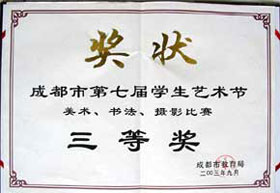 奖状
成都市第七届学生艺术节
美术、书法、摄影比赛
三等奖
成都市教育局
二00三年九月